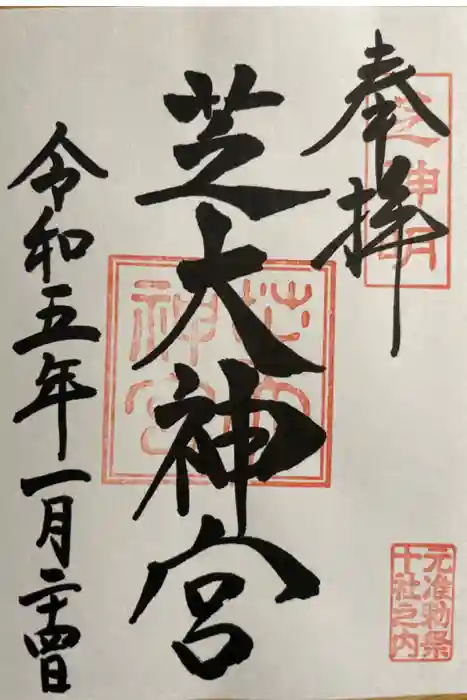 奉拝
芝神明
芝大神宮
芝大神宮
令和五年一月二十四日
元准勅祭
十社之内